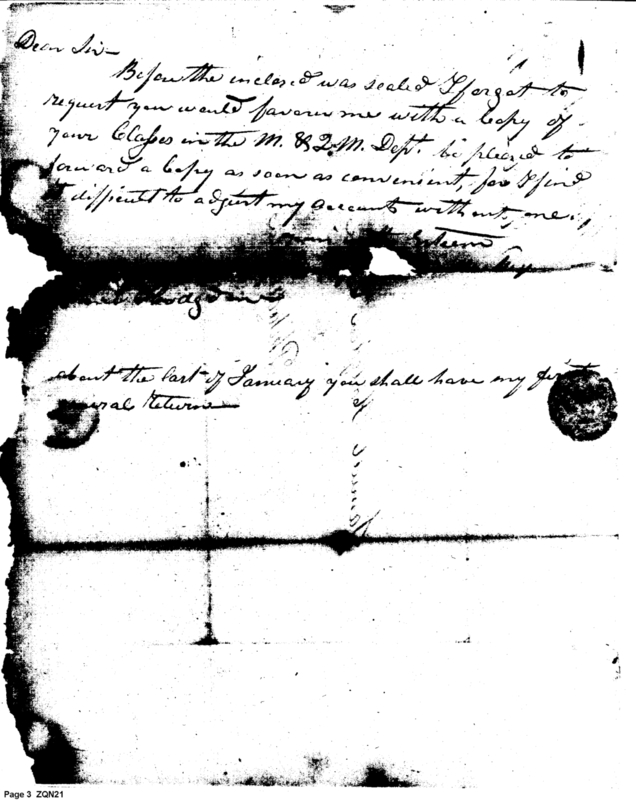 Dear Sir
Before the inclosed was sealed I forgot to
request you would favour me with a Copy of
your Classes in the M. & Q. M. Dept. be pleased to
forward a Copy as soon as convenient, for I find
difficult to adjust my accounts without one.
Esteem
Hodgdon
about the last of January you shall have my first
return
Page 3 ZQN21